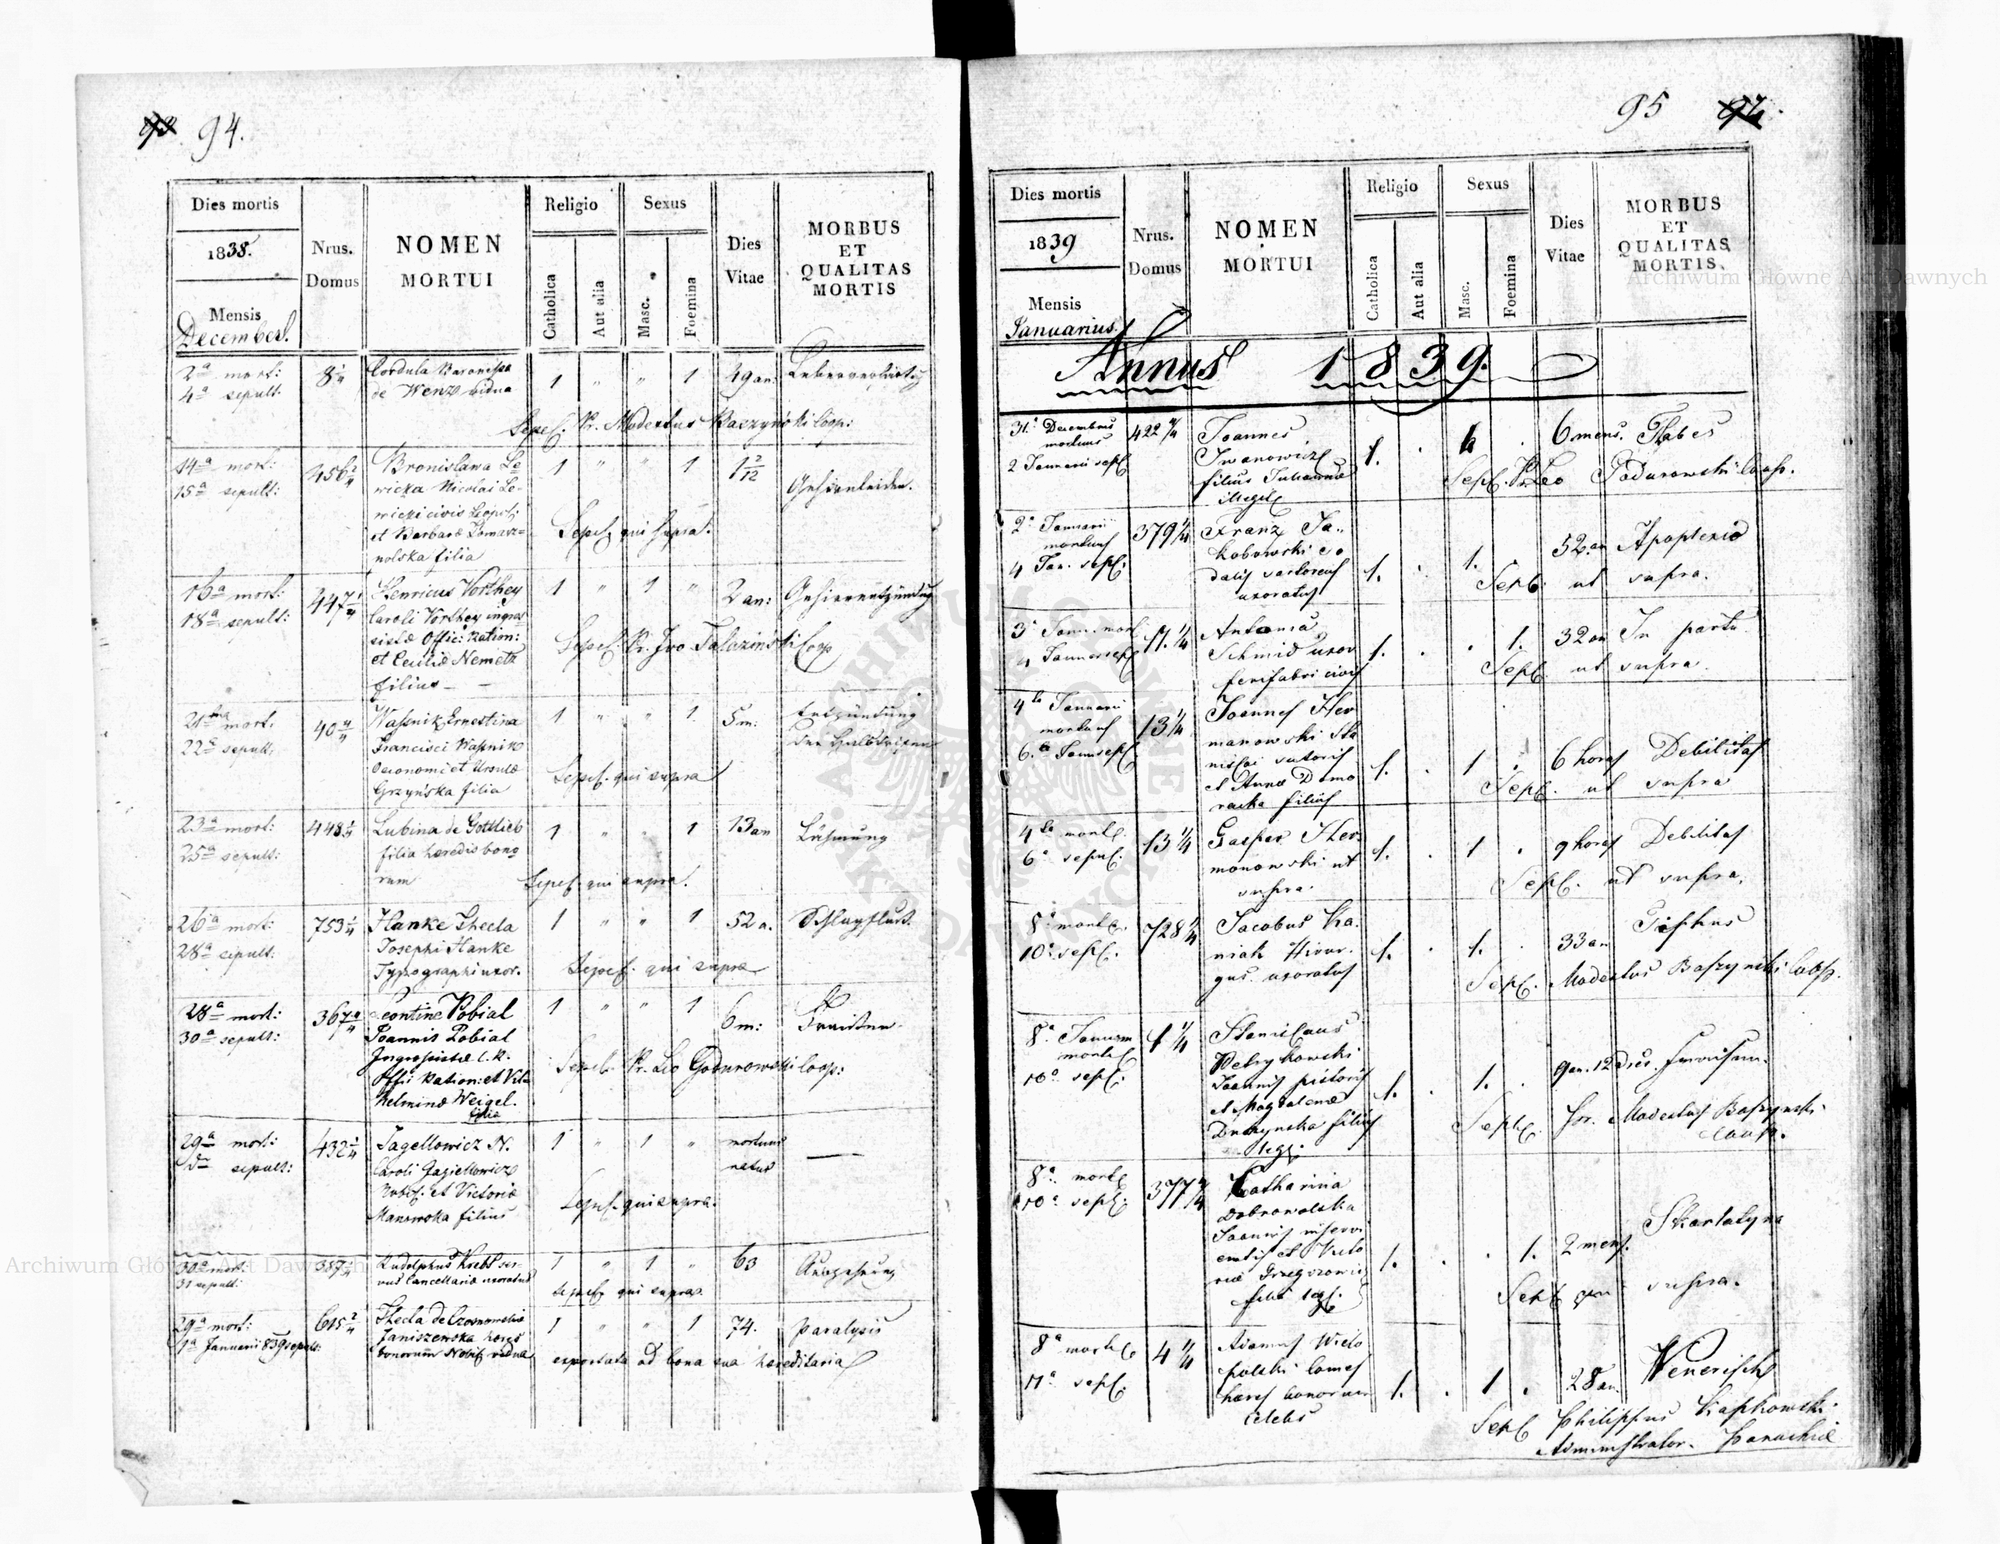 94.
Dies mortis
1838.
Mensis
December
Nrus.
Domus
NOMEN
MORTUI
Religio
Catholica
Aut alia
Sexus
Masc.
Foemina
Dies
Vitae
MORBUS
ET
QUALITAS
MORTIS
2a mort:
4a sepult.
8 1/4
Cordula Baronissa
de Wenz vidua
1 " " 1
49 an:
Sepel. Pr. Modestus Baczyński Coop:
14a mort:
15a sepult:
456 2/4
Bronislawa Le-
wicka Nicolai Le-
wicki civis Leopol:
et Barbara Tomasz-
nolska filia
1 " " 1
1 2/12
Gehirnleiden.
Sepel. qui supra.
16a mort:
18a sepult:
447 1/4
Henricus Vorthey
Caroli Vorthey ingros
sistae Offic: Ration:
et Ceciliae Nemetz
filius
1 " 1 "
2 an:
Gehirnentzündung
Sepel. Pr. Ivo Coop
21ma mort:
22a sepult:
40 4/4
Waßnik Ernestina
Francisci Waßnik
Oeconomi et Ursulae
Grzyńska filia
1 " " 1
5 m:
Entzündung
der
Sepel. qui supra
23a mort:
25a sepult:
448 1/4
Lubina de Gottlieb
filia haeredis bono
rum
1 " " 1
13 an
Lähmung
Sepel. qui supra.
26a mort:
28a sepult.
753 1/4
Hanke Thecla
Josephi Hanke
Typographi uxor.
1 " " 1
52 a.
Schlagfluß.
Sepel. qui supra
28a mort:
30a sepult:
367 4/4
Leontine Pobial
Joannis Pobial
Ingrossistae C. R.
Offic Ration: et Vil
helminae Weigel.
filia
1 " " 1
6 m:
Fraisen.
Sepel. Pr. Leo Godurowski Coop:
29a mort:
sepult:
432 1/4
Jagellowicz N.
Caroli Jagiellowicz
Nobil. et Victoria
filius
1 " 1 "
mortuus
natus
Sepel. qui supra.
30a mort:
31 sepult:
387 2/4
Rudolphus Krebl ser-
vus Cancellariae uxoratus
1 " 1 "
63
Auszehrung
Sepel. qui supra
29a mort:
1a Januarii 839 sepult:
615 2/4
Thecla de Czosnowskie
Janiszewska haeres
bonorum Nobil vidua
1 " " 1
74.
paralysis
exportata ad bona sua haereditaria
95
Dies mortis
1839
Mensis
Januarius
Nrus.
Domus
NOMEN
MORTUI
Religio
Catholica
Aut alia
Sexus
Masc.
Foemina
Dies
Vitae
MORBUS
ET
QUALITAS
MORTIS.
Annus 1839.
31. Decembris
mortuus
2 Januarii sepl
422 4/4
Joannes
Iwanowicz
filius Julianna
illegit
1.
6 mens.
Tabes
Sepl. Pr. Leo Godurowski Coop.
2a Januarii
mortuus
4 Jan. sepl.
379 1/4
Franz Ja-
kobowski so
dalis sartorius
uxoratus
1. . 1. .
52 an
Apoplexia
Sepl. ut supra.
3a Janu. mort
4 Januar sepl
Antonia
Schmid uxor
ferrifabri civis
1. . . 1.
32 an
In partu
Sepl. ut supra.
4ta Januarii
mortuus
6ta Janu sepl
13 1/4
Joannes Her
manowski Sta
nislai sutoris
et Anna Domo
racka filius
1. . 1 .
6 horas
Debilitas
Sepl. ut supra
4ta mort.
6a sepul.
13 1/4
Gasper Her
monowski ut
supra.
1. . 1 .
9 horas
Debilitas
Sepl. ut supra.
8a mort.
10a sepl.
728 1/4
Jacobus Ka
niak
uxoratus
1. . 1. .
33 an
Tiphus
Sepl. Modestus Baczynski Coop.
8a Januar
mort
10a sepl.
Stanislaus
Petrykowski
Joannis pictoris
et Magdalenae
Druzynska filius
legi.
1. . 1. .
9 an. 12 dies.
Sepl. Pr. Modestus Baczynski
Coop.
8a mort
10a sepl.
377 4/4
Catharina
Dobrowolska
Joannis inservi
entis et Victo
riae Grzegrzowic
filia legi.
1. . . 1.
2 mens.
Skarlatyna
Sepl supra.
8a mort
11a sepl.
4 1/4
Adamus Wielo
polski Comes
haeres bonorum
celebs
1. . 1 .
28 an.
Venerisch
Sepl Philippus Kapkowski
Administrator. Parochiae
Archiwum Główne Akt Dawnych
Archiwum Główne Akt Dawnych
ARCHIWUM GŁÓWNE AKT DAWNYCH